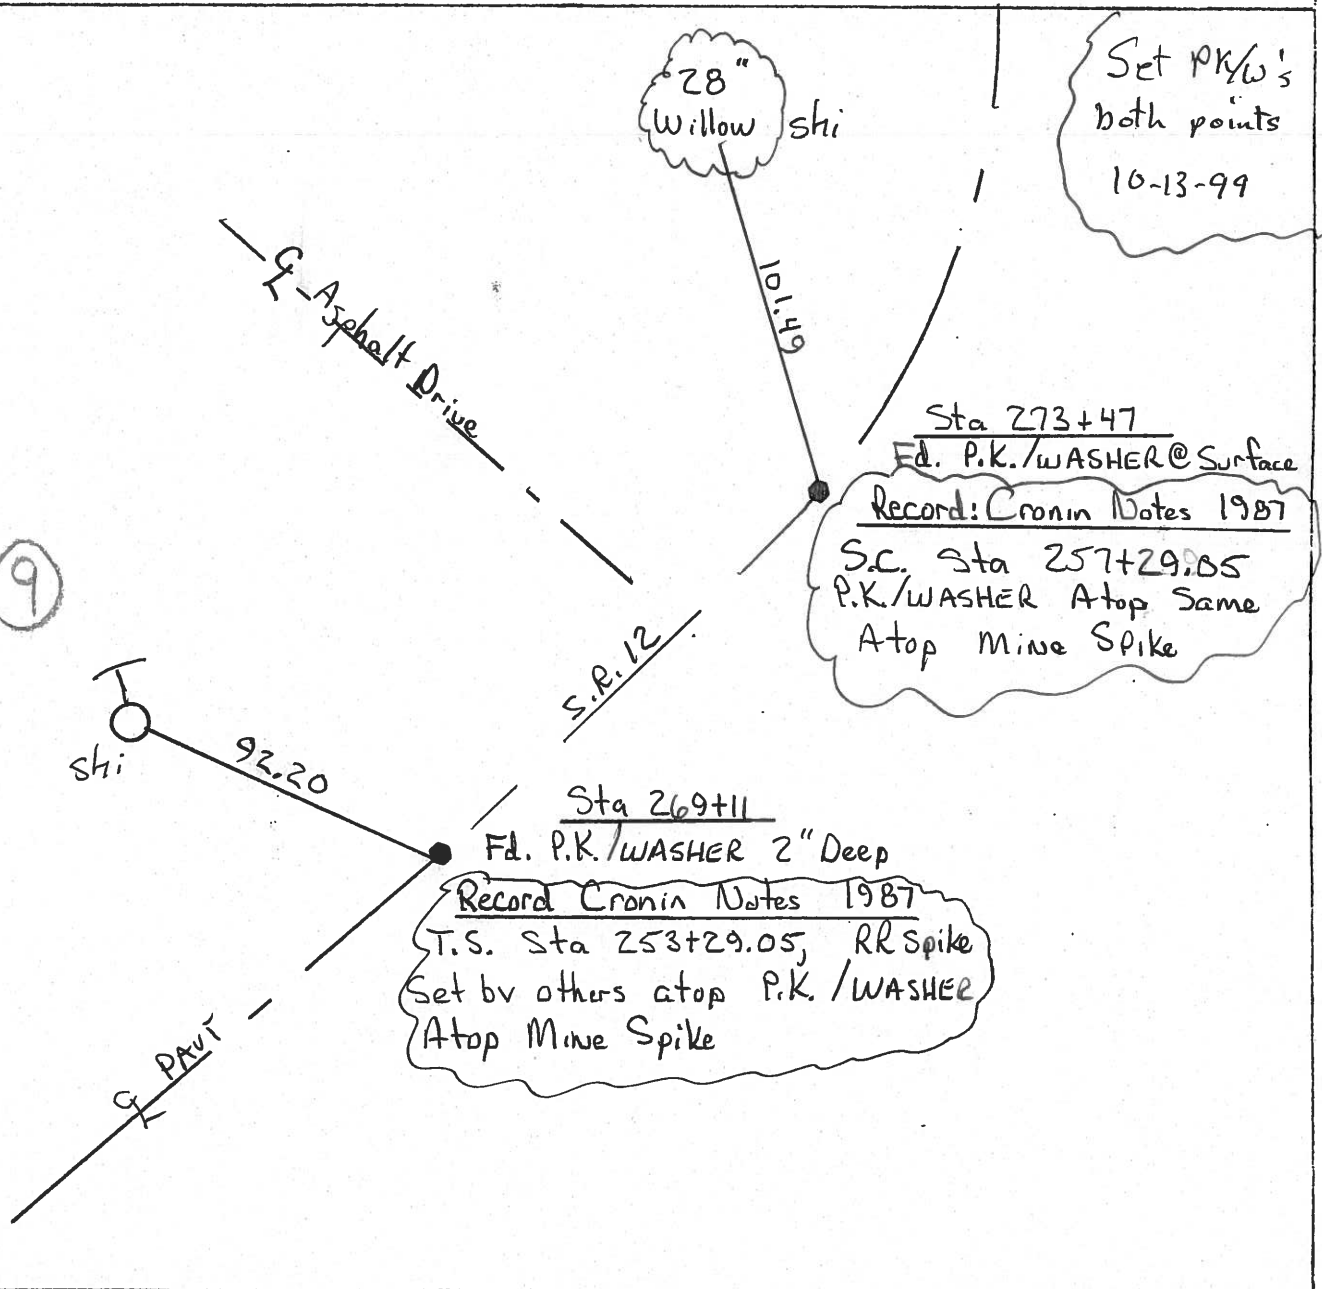 Set PK/W's
both points
10-13-99
28"
Willow
shi
101.49
℄ Asphalt Drive
Sta 273+47
Fd. P.K./WASHER @ Surface
Record: Cronin Notes 1987
S.C. Sta 257+29.05
P.K./WASHER Atop Same
Atop Mine Spike
9
S.R. 12
shi
92.20
Sta 269+11
Fd. P.K./WASHER 2" Deep
Record Cronin Notes 1987
T.S. Sta 253+29.05, RR Spike
Set by others atop P.K./WASHER
Atop Mine Spike
℄ PAVT